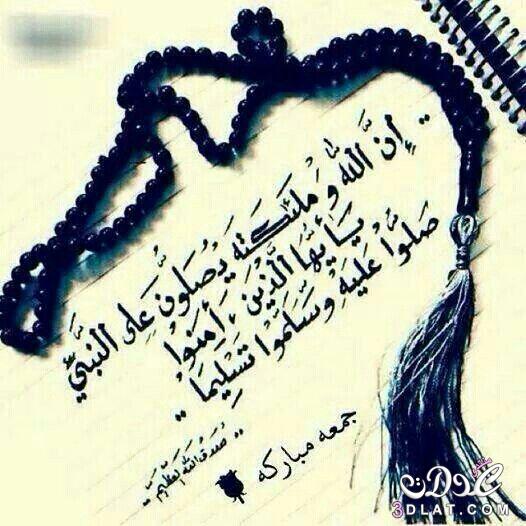 .. إنَّ اللَّهَ وَ مَلَئكَتَه يُصَلّونَ عَلى النَّبيِّ
يَـأيُّها الَّذينَ ءَامنوا
صَلُّوا عَليهِ وسَلِّمُوا تَسْلِيمًا ..
.. صدق الله العظيم ..
جمعه مباركه
3DLAT.COM